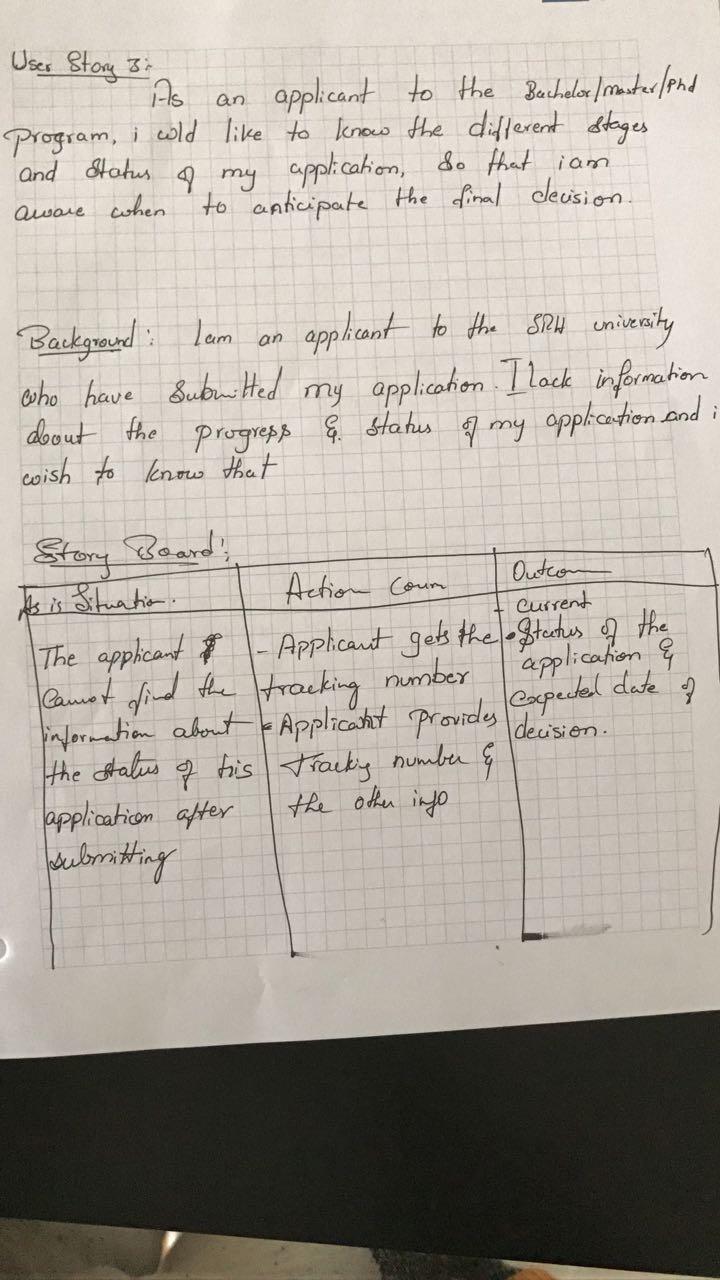 User Story 3:-
As an applicant to the Bachelor/master/phd
Program, i wold like to know the different stages
and status of my application, so that i am
aware when to anticipate the final decision.
Background: I am an applicant to the SRH university
who have submitted my application. I lack information
about the progress & status of my application and i
wish to know that
Story Board:
As is Situation.
The applicant
cannot find the
information about
the status of his
application after
submitting
Action Coun
- Applicant gets the
tracking number
- Applicant provides
trackig number &
the other info
Outcom
- current
• Status of the
application &
expected date of
decision.